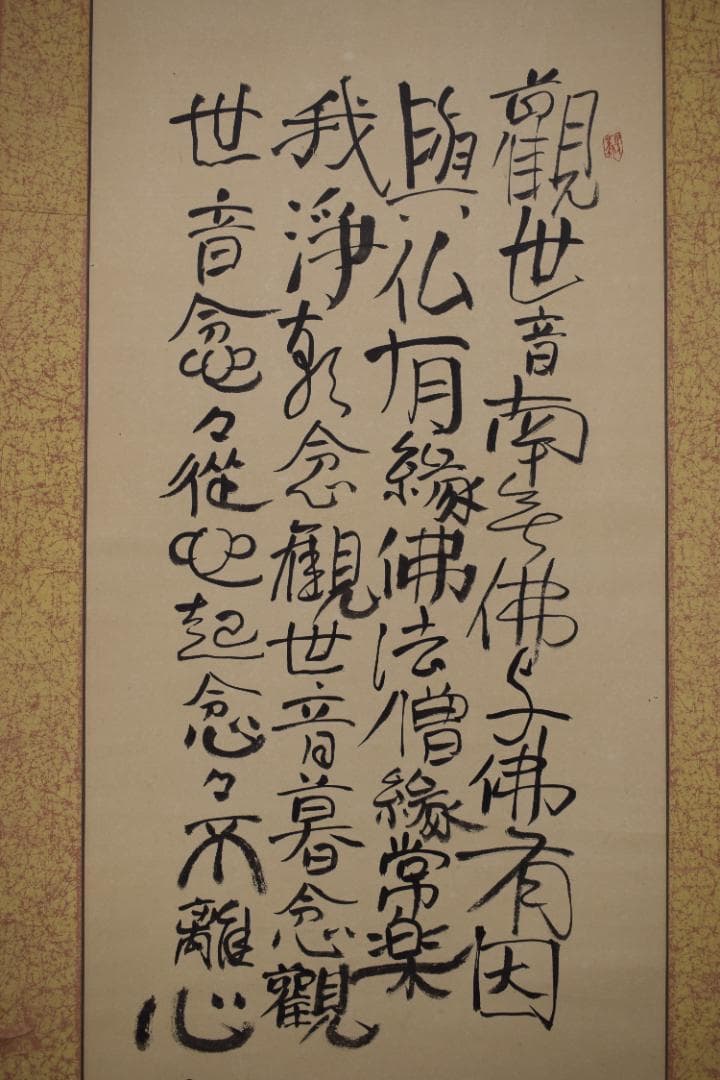 觀世音南无佛与佛有因
與仏有緣佛法僧緣常楽
我淨朝念觀世音暮念觀
世音念々從心起念々不離心